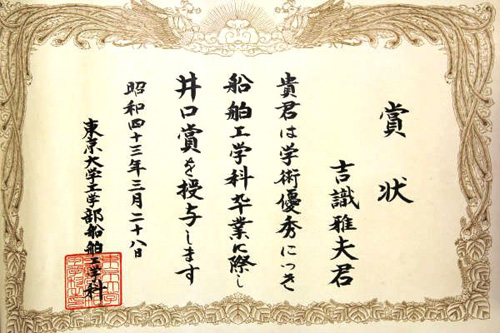 賞状
吉識雅夫君
貴君は学術優秀につき
船舶工学科卒業に際し
井口賞を授与します
昭和四十三年三月二十八日
東京大学工学部船舶工学科